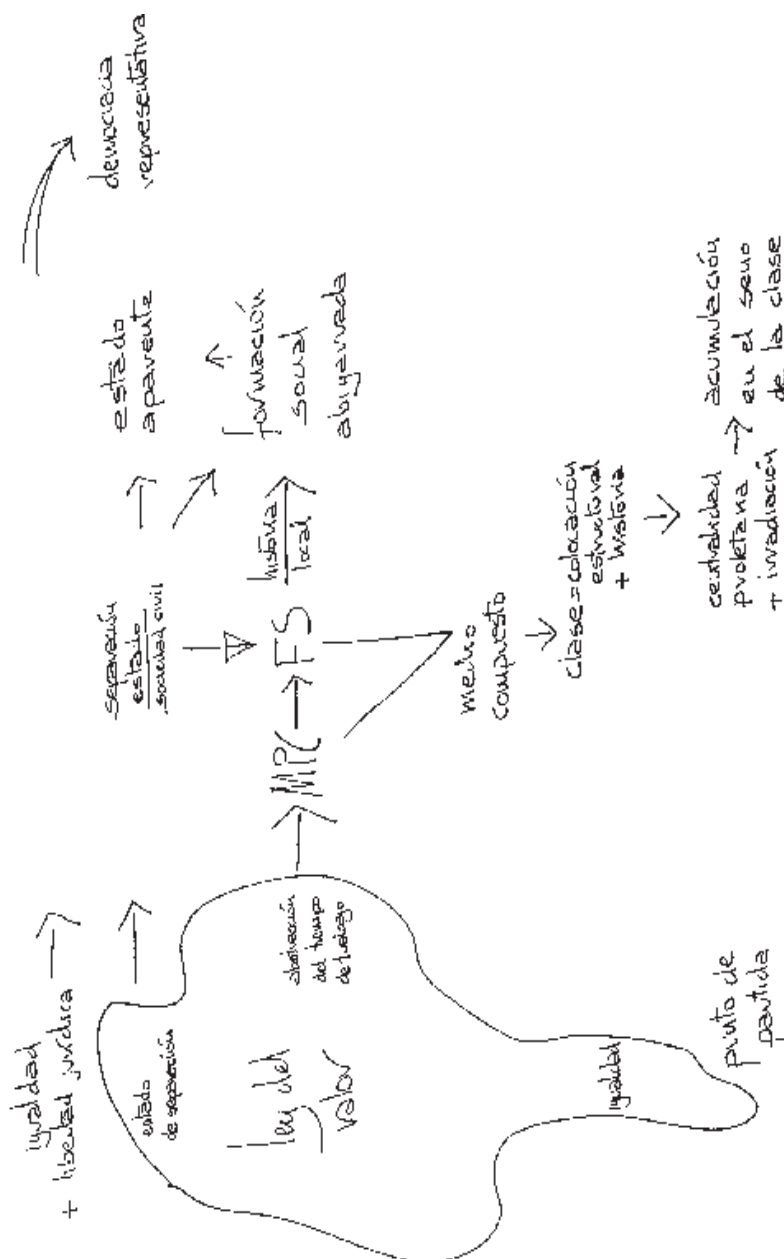 igualdad
+ libertad jurídica
estado
de separación
ley del
valor
abstracción
del tiempo
de trabajo
igualdad
punto de
partida
separación
estado
sociedad civil
MPC
FS
historia
local
estado
aparente
formación
social
abigarrada
democracia
representativa
medio
compuesto
clase=colocación
estructural
+ historia
centralidad
proletaria
+ irradiación
acumulación
en el seno
de la clase